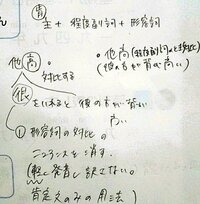 主 + 程度副詞 + 形容詞
他高
・他高(程度副詞
(彼の方が背が高い)
対比する
很 をいれると 彼の方が
① 形容詞の対比の
ニュアンスを消す。
(軽く発音し訳さない。
肯定文のみの用法)